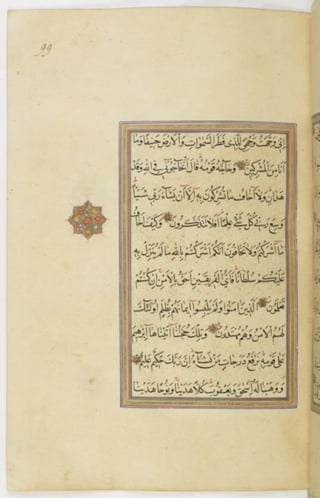 99
اِنّي وَجَّهْتُ وَجْهِيَ لِلَّذي فَطَرَ السَّمٰوَاتِ وَالْاَرْضَ حَنيفًا وَمَا
اَنَا مِنَ الْمُشْرِكينَ وَحَاجَّهُ قَوْمُهُ قَالَ اَتُحَاجُّونّي فِي اللّٰهِ وَقَدْ
هَدٰانِ وَلَا اَخَافُ مَا تُشْرِكُونَ بِهِ اِلَّا اَنْ يَشَاءَ رَبّي شَيْئًا
وَسِعَ رَبّي كُلَّ شَيْءٍ عِلْمًا اَفَلَا تَتَذَكَّرُونَ وَكَيْفَ اَخَافُ
مَا اَشْرَكْتُمْ وَلَا تَخَافُونَ اَنَّكُمْ اَشْرَكْتُمْ بِاللّٰهِ مَا لَمْ يُنَزِّلْ بِهِ
عَلَيْكُمْ سُلْطَانًا فَاَيُّ الْفَريقَيْنِ اَحَقُّ بِالْاَمْنِ اِنْ كُنْتُمْ
تَعْلَمُونَ اَلَّذينَ اٰمَنُوا وَلَمْ يَلْبِسُوا ايمَانَهُمْ بِظُلْمٍ اُولٰئِكَ
لَهُمُ الْاَمْنُ وَهُمْ مُهْتَدُونَ وَتِلْكَ حُجَّتُنَا اٰتَيْنَاهَا اِبْرٰهيمَ
عَلٰى قَوْمِهِ نَرْفَعُ دَرَجَاتٍ مَنْ نَشَاءُ اِنَّ رَبَّكَ حَكيمٌ عَليمٌ
وَوَهَبْنَا لَهُ اِسْحٰقَ وَيَعْقُوبَ كُلًّا هَدَيْنَا وَنُوحًا هَدَيْنَا